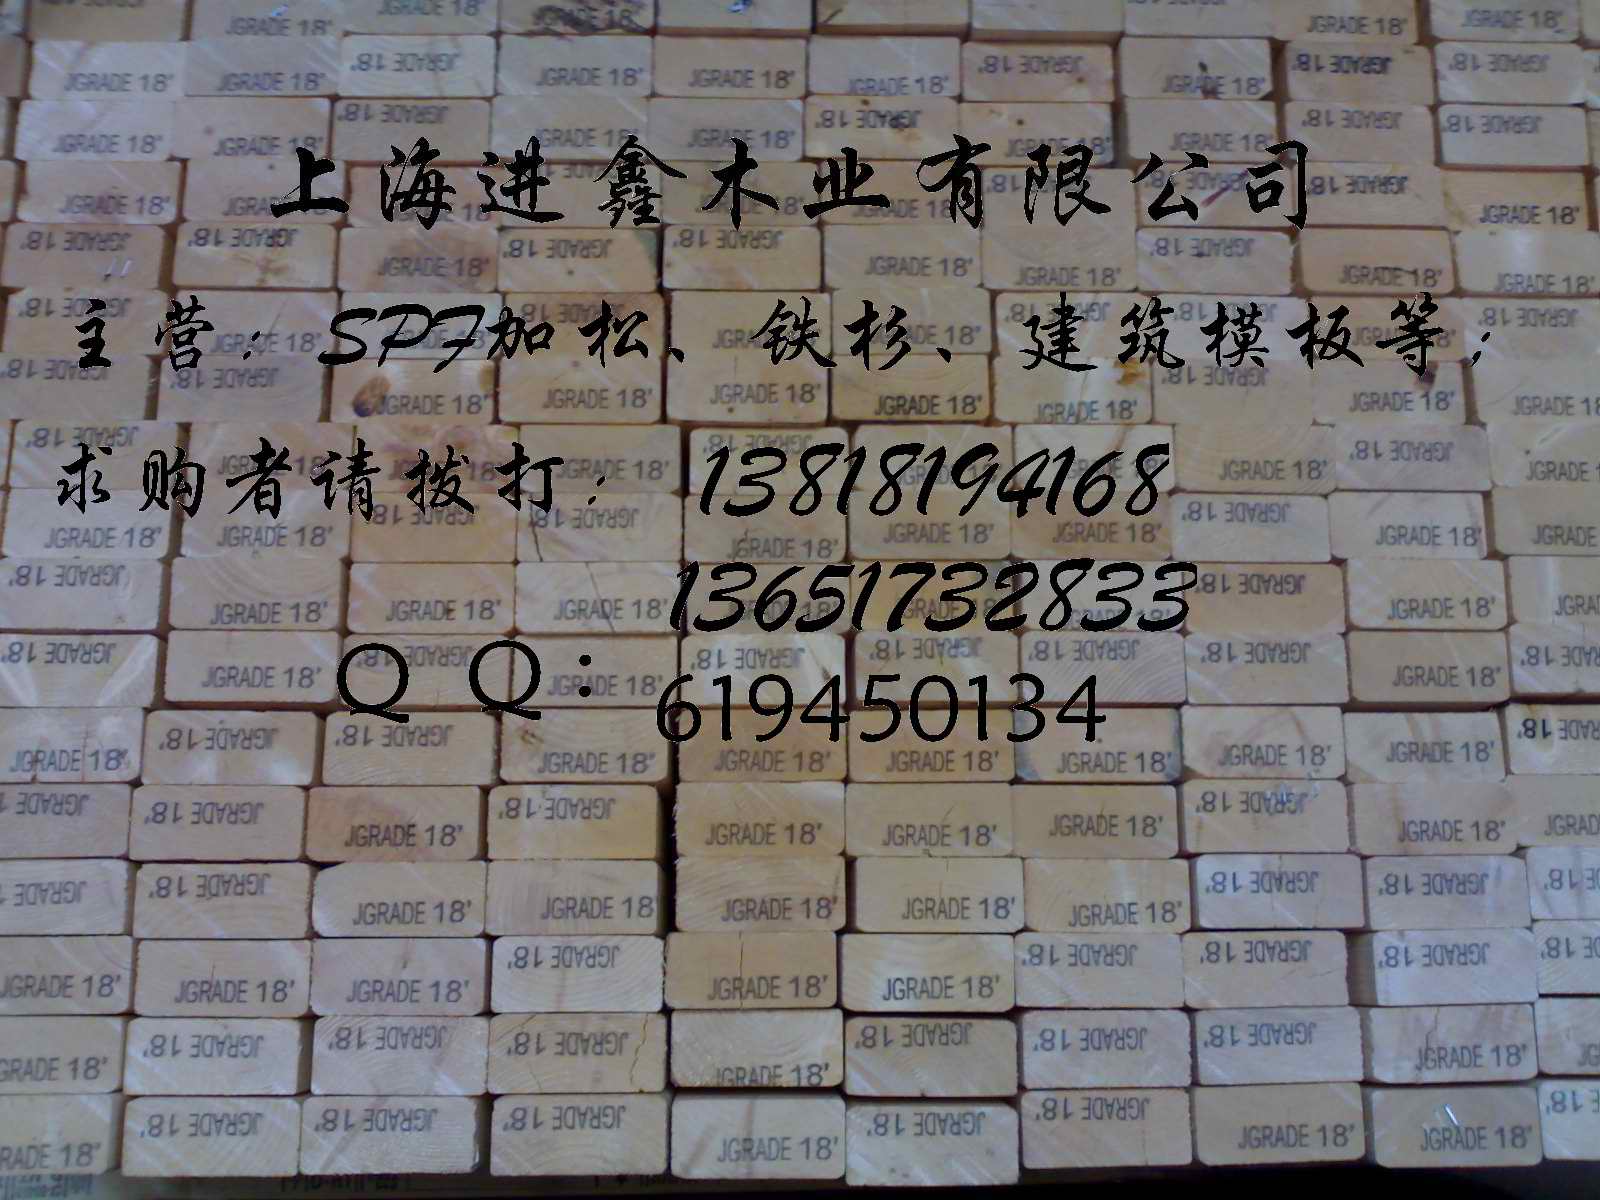 上海进鑫木业有限公司
主营：SPF加松、铁杉、建筑模板等；
求购者请拨打：13818194168
13651732833
QQ：619450134
JGRADE 18'